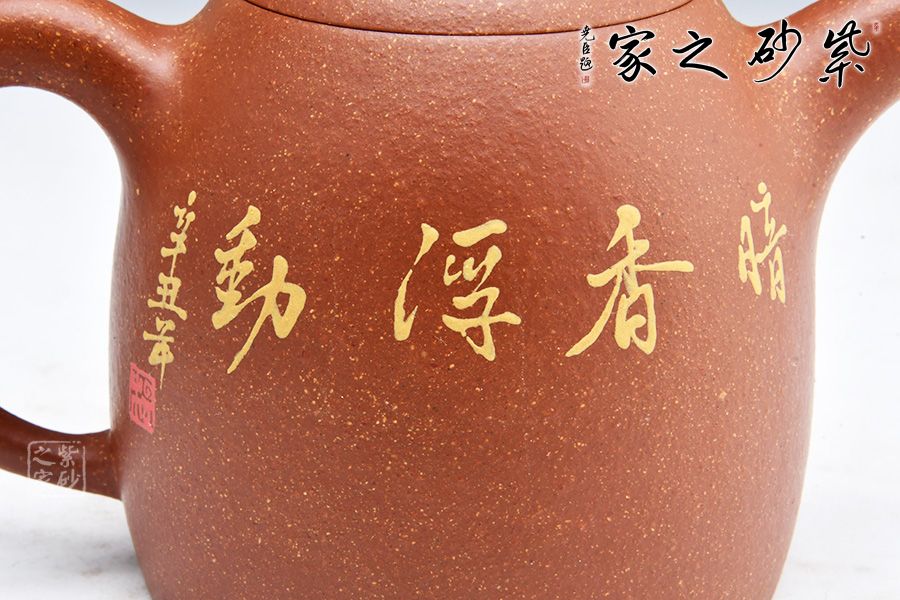 紫砂之家
尧臣题
暗香浮動
辛丑年
紫砂
之家